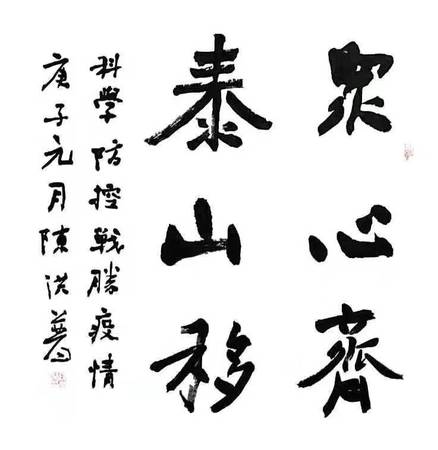 眾心齊
泰山移
科學防控戰勝疫情
庚子元月陳洪